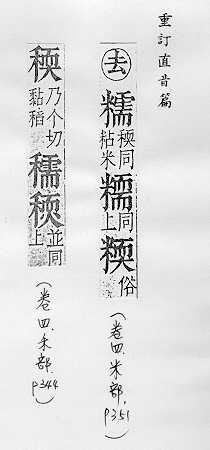 重訂直音篇
去 糯 稬同 粘米 糥 同上 俗
(卷四.米部. P351)
稬 乃个切 黏稻 穤 並同上
(卷四.禾部. P344)